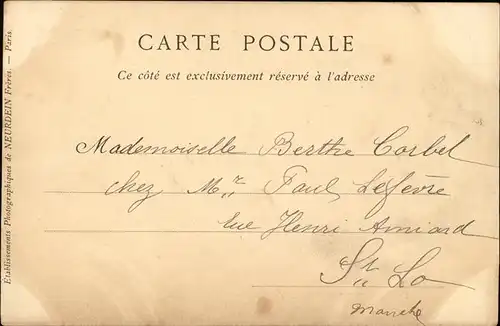 CARTE POSTALE
Ce côté est exclusivement réservé à l'adresse
Mademoiselle Berthe Corbel
chez Mr Paul Lefèvre
rue Henri Amiard
St Lo
Manche
Etablissements Photographiques de NEURDEIN Frères. — Paris.